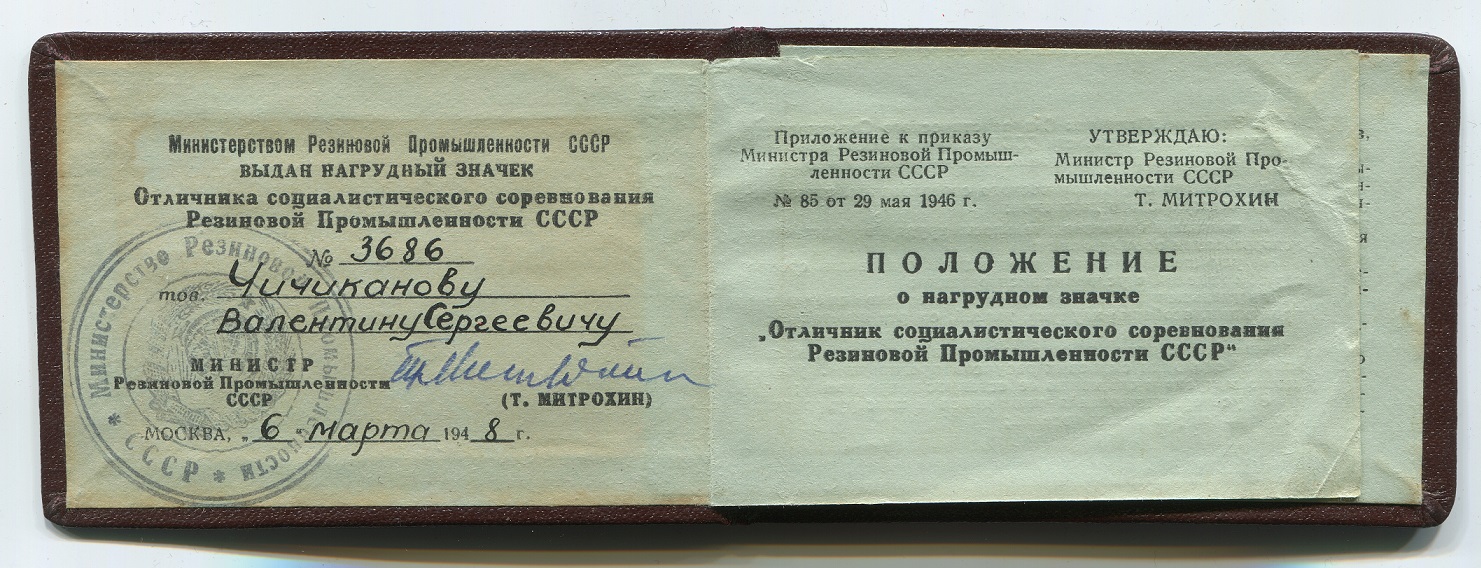 Министерством Резиновой Промышленности СССР
ВЫДАН НАГРУДНЫЙ ЗНАЧЕК
Отличника социалистического соревнования
Резиновой Промышленности СССР
№ 3686
тов. Чичиканову
Валентину Сергеевичу
МИНИСТР
Резиновой Промышленности
СССР
(Т. МИТРОХИН)
МОСКВА, „6" марта 1948 г.
Министерство Резиновой Промышленности
* СССР *
Приложение к приказу
Министра Резиновой Промыш-
ленности СССР
№ 85 от 29 мая 1946 г.
УТВЕРЖДАЮ:
Министр Резиновой Про-
мышленности СССР
Т. МИТРОХИН
ПОЛОЖЕНИЕ
о нагрудном значке
„Отличник социалистического соревнования
Резиновой Промышленности СССР"